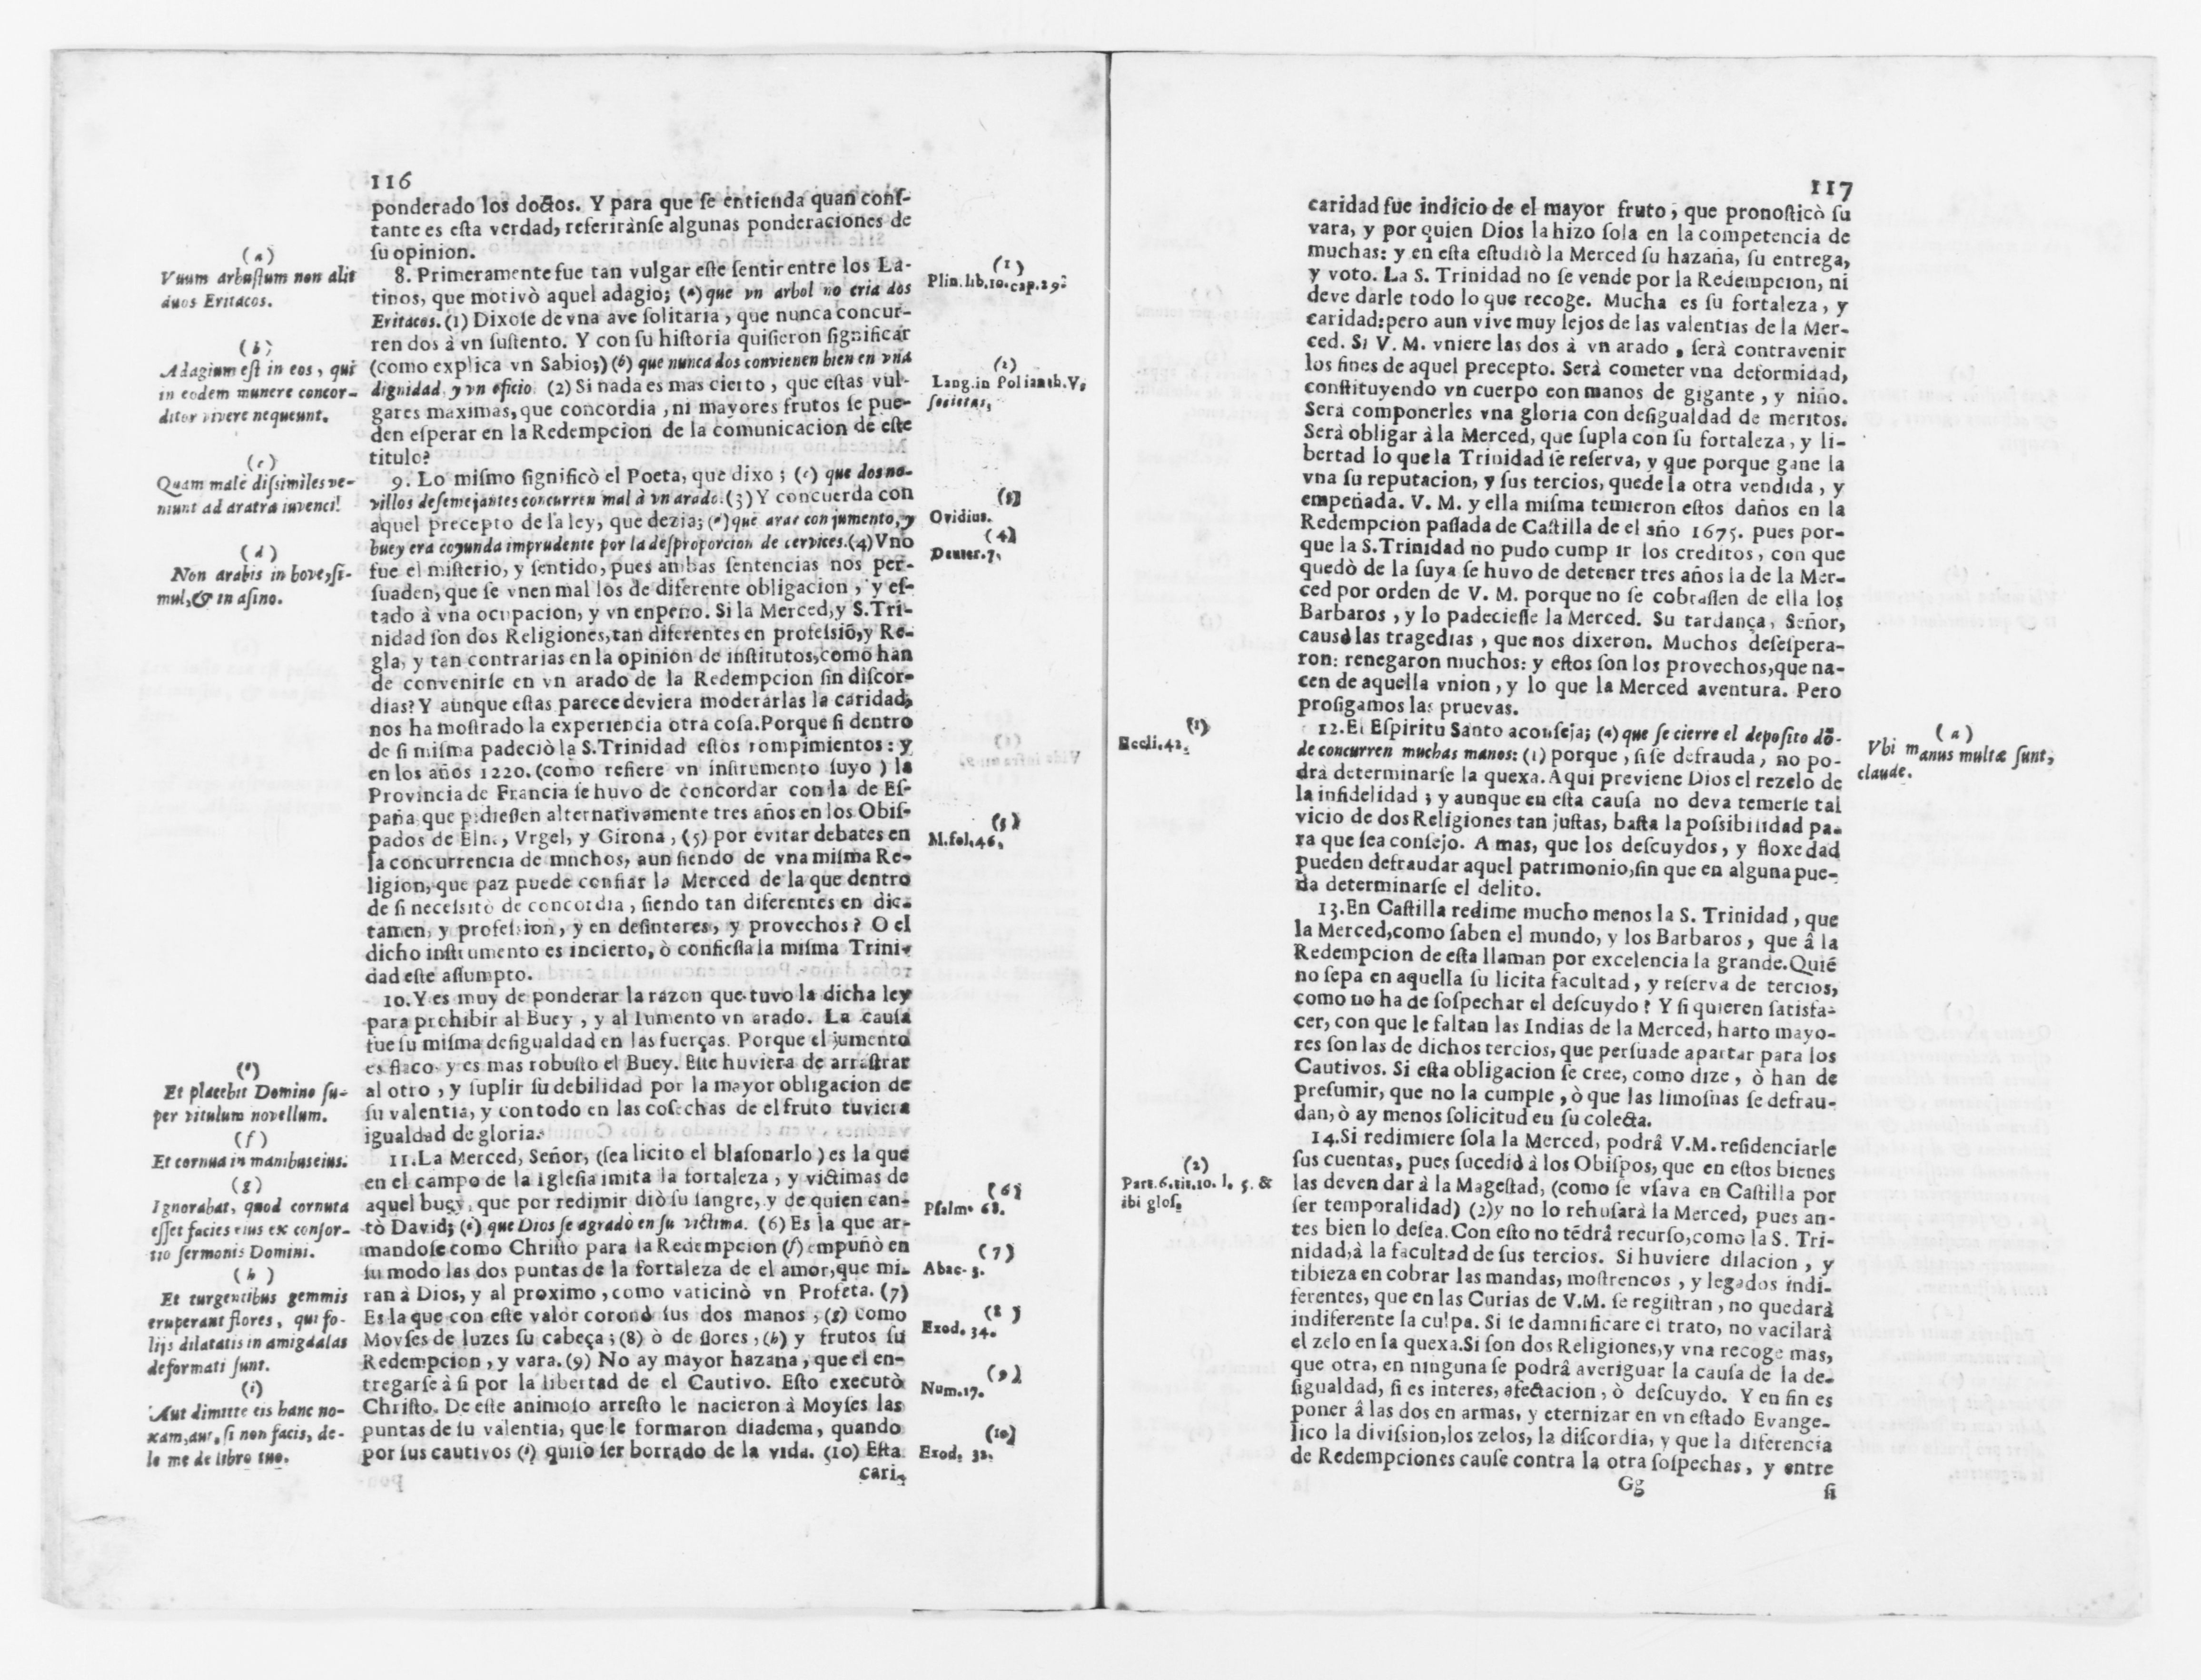 116
ponderado los doctos. Y para que ſe entienda quan conſ-
tante es eſta verdad, referirànſe algunas ponderaciones de
ſu opinion.
8. Primeramente fue tan vulgar eſte ſentir entre los La-
tinos, que motivò aquel adagio; (a) que vn arbol no cria dos
Eritacos. (1) Dixoſe de vna ave ſolitaria, que nunca concur-
ren dos à vn ſuſtento. Y con ſu hiſtoria quiſieron ſignificar
(como explica vn Sabio;) (b) que nunca dos convienen bien en vna
dignidad, y vn oficio. (2) Si nada es mas cierto, que eſtas vul-
gares maximas, que concordia, ni mayores frutos ſe pue-
den eſperar en la Redempcion de la comunicacion de eſte
titulo?
9. Lo miſmo ſignificò el Poeta, que dixo; (c) que dos no-
villos deſemejantes concurren mal à vn arado. (3) Y concuerda con
aquel precepto de la ley, que dezia; (d) que arar con jumento, y
buey era coyunda imprudente por la deſproporcion de cervices. (4) Vno
fue el miſterio, y ſentido, pues ambas ſentencias nos per-
ſuaden, que ſe vnen mal los de diferente obligacion, y eſ-
tado à vna ocupacion, y vn enpeño. Si la Merced, y S. Tri-
nidad ſon dos Religiones, tan diferentes en profeſsiõ, y Re-
gla, y tan contrarias en la opinion de inſtitutos, como han
de convenirſe en vn arado de la Redempcion ſin diſcor-
dias? Y aunque eſtas parece deviera moderarlas la caridad,
nos ha moſtrado la experiencia otra coſa. Porque ſi dentro
de ſi miſma padeciò la S. Trinidad eſtos rompimientos: y
en los años 1220. (como refiere vn inſtrumento ſuyo) la
Provincia de Francia ſe huvo de concordar con la de Eſ-
paña que pidieſſen alternativamente tres años en los Obiſ-
pados de Eln., Vrgel, y Girona, (5) por evitar debates en
la concurrencia de muchos, aun ſiendo de vna miſma Re-
ligion, que paz puede confiar la Merced de la que dentro
de ſi neceſsitò de concordia, ſiendo tan diferentes en dic-
tamen, y profeſsion, y en deſinteres, y provechos? O el
dicho inſtrumento es incierto, ò confieſſa la miſma Trini-
dad eſte aſſumpto.
10. Y es muy de ponderar la razon que tuvo la dicha ley
para prohibir al Buey, y al Iumento vn arado. La cauſa
fue ſu miſma deſigualdad en las fuerças. Porque el jumento
es flaco y es mas robuſto el Buey. Eſte huviera de arraſtrar
al otro, y ſuplir ſu debilidad por la mayor obligacion de
ſu valentia, y con todo en las coſechas de el fruto tuviera
igualdad de gloria.
11. La Merced, Señor, (ſea licito el blaſonarlo) es la que
en el campo de la Igleſia imita la fortaleza, y victimas de
aquel buey, que por redimir diò ſu ſangre, y de quien can-
tò David; (e) que Dios ſe agradò en ſu victima. (6) Es la que ar-
mandoſe como Chriſto para la Redempcion (f) empuñò en
ſu modo las dos puntas de la fortaleza de el amor, que mi-
ran à Dios, y al proximo, como vaticinò vn Profeta. (7)
Es la que con eſte valor coronò ſus dos manos, (g) como
Moyſes de luzes ſu cabeça; (8) ò de flores, (h) y frutos ſu
Redempcion, y vara. (9) No ay mayor hazana, que el en-
tregarſe à ſi por la libertad de el Cautivo. Eſto executò
Chriſto. De eſte animoſo arreſto le nacieron à Moyſes las
puntas de ſu valentia, que le formaron diadema, quando
por ſus cautivos (i) quiſo ſer borrado de la vida. (10) Eſta
cari-
(a)
Vnum arbuſtum non alit
duos Eritacos.
(b)
Adagium eſt in eos, qui
in eodem munere concor-
diter vivere nequeunt.
(c)
Quam malè diſsimiles ve-
niunt ad aratra iuvenci!
(d)
Non arabis in bove, ſi-
mul, & in aſino.
(e)
Et placebit Domino ſu-
per vitulum novellum.
(f)
Et cornua in manibus eius.
(g)
Ignorabat, quod cornuta
eſſet facies eius ex conſor-
tio ſermonis Domini.
(h)
Et turgentibus gemmis
eruperant flores, qui fo-
lijs dilatatis in amigdalas
deformati ſunt.
(i)
Aut dimitte eis hanc no-
xam, aut, ſi non facis, de-
le me de libro tuo.
(1)
Plin. lib. 10. cap. 29.
(2)
Lang. in Polianth. V.
ſocietas,
(3)
Ovidius.
(4)
Deuter. 7.
(5)
M. fol. 46.
(6)
Pſalm. 68.
(7)
Abac. 3.
(8)
Exod. 34.
(9)
Num. 17.
(10)
Exod. 32.
117
caridad fue indicio de el mayor fruto, que pronoſticò ſu
vara, y por quien Dios la hizo ſola en la competencia de
muchas: y en eſta eſtudiò la Merced ſu hazaña, ſu entrega,
y voto. La S. Trinidad no ſe vende por la Redempcion, ni
deve darle todo lo que recoge. Mucha es ſu fortaleza, y
caridad: pero aun vive muy lejos de las valentias de la Mer-
ced. Si V. M. vniere las dos à vn arado, ſerà contravenir
los fines de aquel precepto. Serà cometer vna deformidad,
conſtituyendo vn cuerpo con manos de gigante, y niño.
Serà componerles vna gloria con deſigualdad de meritos.
Serà obligar à la Merced, que ſupla con ſu fortaleza, y li-
bertad lo que la Trinidad ſe reſerva, y que porque gane la
vna ſu reputacion, y ſus tercios, quede la otra vendida, y
empeñada. V. M. y ella miſma temieron eſtos daños en la
Redempcion paſſada de Caſtilla de el año 1675. pues por-
que la S. Trinidad no pudo cumplir los creditos, con que
quedò de la ſuya ſe huvo de detener tres años la de la Mer-
ced por orden de V. M. porque no ſe cobraſſen de ella los
Barbaros, y lo padecieſſe la Merced. Su tardança, Señor,
causò las tragedias, que nos dixeron. Muchos deſeſpera-
ron: renegaron muchos: y eſtos ſon los provechos, que na-
cen de aquella vnion, y lo que la Merced aventura. Pero
proſigamos las pruevas.
12. El Eſpiritu Santo aconſeja; (a) que ſe cierre el depoſito dõ-
de concurren muchas manos: (1) porque, ſi ſe defrauda, no po-
drà determinarſe la quexa. Aqui previene Dios el rezelo de
la infidelidad; y aunque en eſta cauſa no deva temerſe tal
vicio de dos Religiones tan juſtas, baſta la poſsibilidad pa-
ra que ſea conſejo. A mas, que los deſcuydos, y floxedad
pueden defraudar aquel patrimonio, ſin que en alguna pue-
da determinarſe el delito.
13. En Caſtilla redime mucho menos la S. Trinidad, que
la Merced, como ſaben el mundo, y los Barbaros, que â la
Redempcion de eſta llaman por excelencia la grande. Quiẽ
no ſepa en aquella ſu licita facultad, y reſerva de tercios,
como no ha de ſoſpechar el deſcuydo? Y ſi quieren ſatisfa-
cer, con que le faltan las Indias de la Merced, harto mayo-
res ſon las de dichos tercios, que perſuade apartar para los
Cautivos. Si eſta obligacion ſe cree, como dize, ò han de
preſumir, que no la cumple, ò que las limoſnas ſe defrau-
dan, ò ay menos ſolicitud en ſu colecta.
14. Si redimiere ſola la Merced, podrâ V. M. reſidenciarle
ſus cuentas, pues ſucediò à los Obiſpos, que en eſtos bienes
las deven dar à la Mageſtad, (como ſe vſava en Caſtilla por
ſer temporalidad) (2) y no lo rehuſarà la Merced, pues an-
tes bien lo deſea. Con eſto no tẽdrâ recurſo, como la S. Tri-
nidad, à la facultad de ſus tercios. Si huviere dilacion, y
tibieza en cobrar las mandas, moſtrencos, y legados indi-
ferentes, que en las Curias de V. M. ſe regiſtran, no quedarà
indiferente la culpa. Si ſe damnificare el trato, no vacilarà
el zelo en la quexa. Si ſon dos Religiones, y vna recoge mas,
que otra, en ninguna ſe podrâ averiguar la cauſa de la de-
ſigualdad, ſi es interes, afectacion, ò deſcuydo. Y en fin es
poner â las dos en armas, y eternizar en vn eſtado Evange-
lico la diviſsion, los zelos, la diſcordia, y que la diferencia
de Redempciones cauſe contra la otra ſoſpechas, y entre
Gg
ſi
(1)
Eccli. 42.
(2)
Part. 6. tit. 10. l. 5. &
ibi gloſ.
(a)
Vbi manus multæ ſunt,
claude.